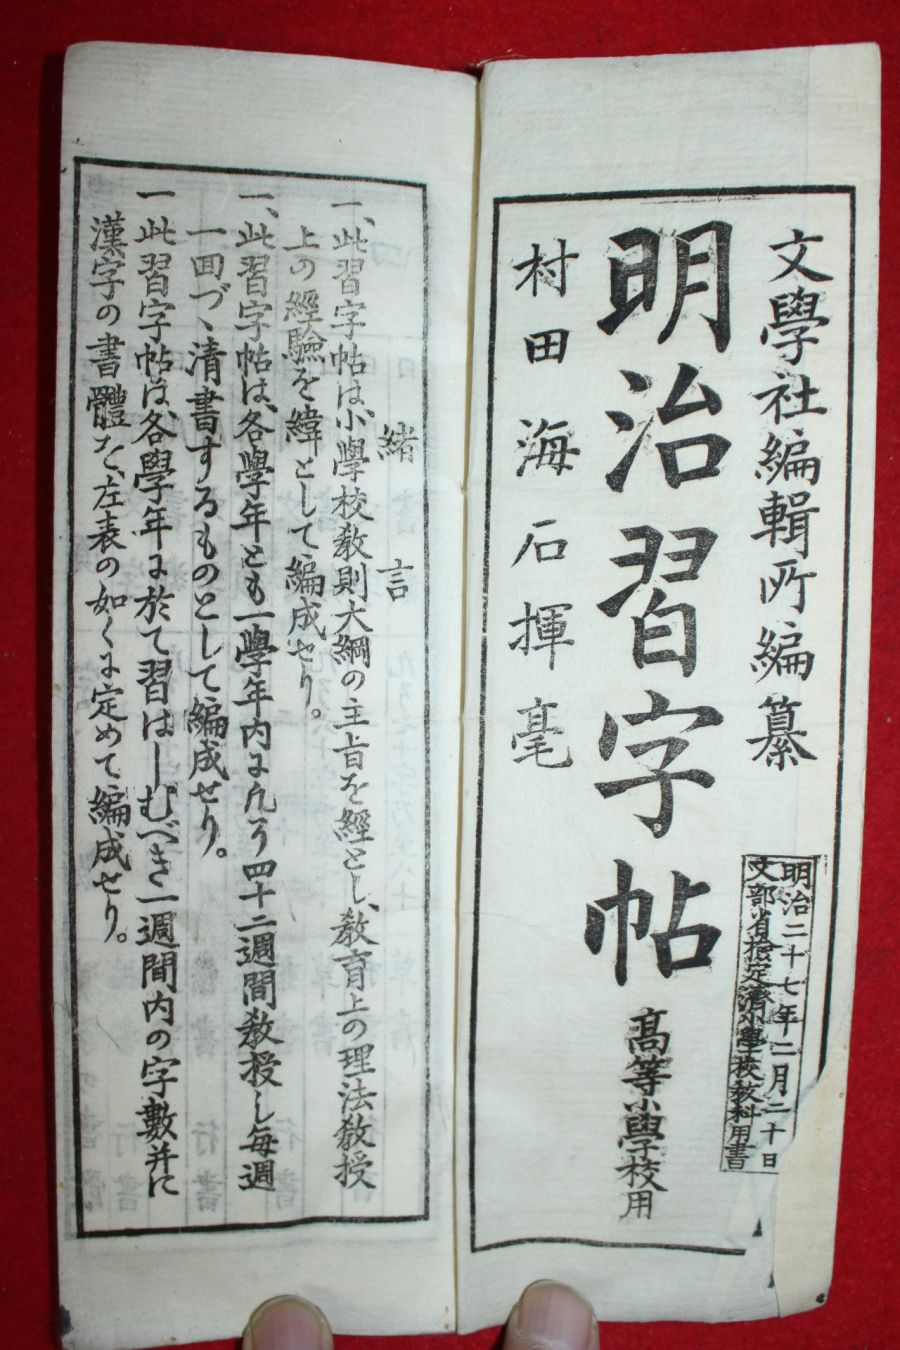 文學社編輯所編纂
明治二十七年二月二十日
文部省檢定濟小學校教科用書
明治習字帖
高等小學校用
村田海石揮毫
緒言
一、此習字帖は、小學校教則大綱の主旨を經とし、教育上の理法教授
上の經驗を緯として編成せり。
一、此習字帖は、各學年とも一學年内に凡そ四十二週間教授し每週
一回づゝ清書するものとして編成せり。
一此習字帖は、各學年に於て習はしむべき一週間内の字數并に
漢字の書體を、左表の如くに定めて編成せり。